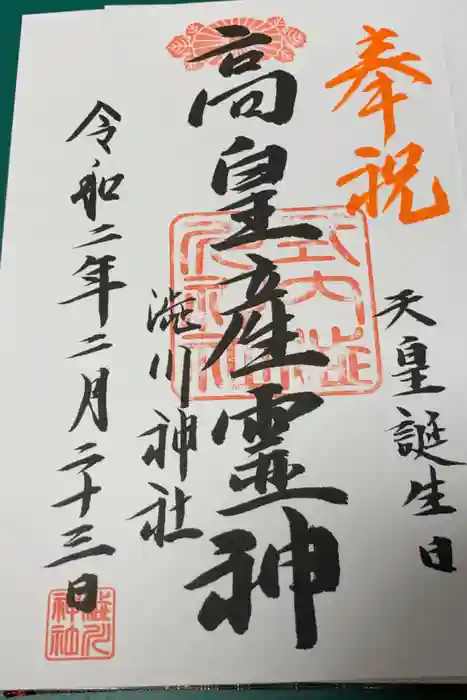 奉祝
天皇誕生日
高皇産霊神
澁川神社
令和二年二月二十三日